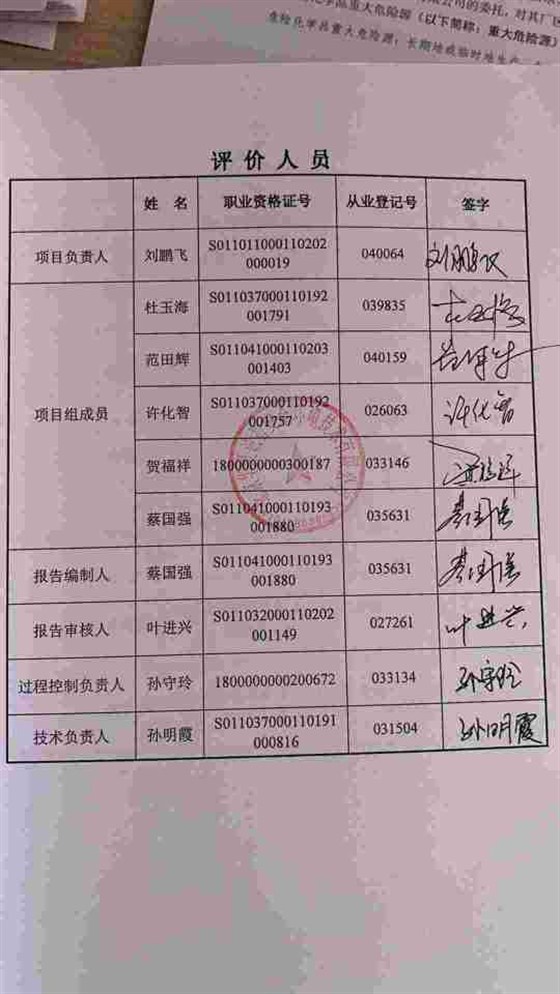 公司的委托，对其厂
化学品重大危险源（以下简称：重大危险源）
危险化学品重大危险源：长期地或临时地生产
评价人员
姓 名 职业资格证号 从业登记号 签字
项目负责人 刘鹏飞 S011011000110202000019 040064 刘鹏飞
项目组成员 杜玉海 S011037000110192001791 039835
范田辉 S011041000110203001403 040159
许化智 S011037000110192001757 026063 许化智
贺福祥 1800000000300187 033146
蔡国强 S011041000110193001880 035631 蔡国强
报告编制人 蔡国强 S011041000110193001880 035631 蔡国强
报告审核人 叶进兴 S011032000110202001149 027261 叶进兴
过程控制负责人 孙守玲 1800000000200672 033134 孙守玲
技术负责人 孙明霞 S011037000110191000816 031504 孙明霞